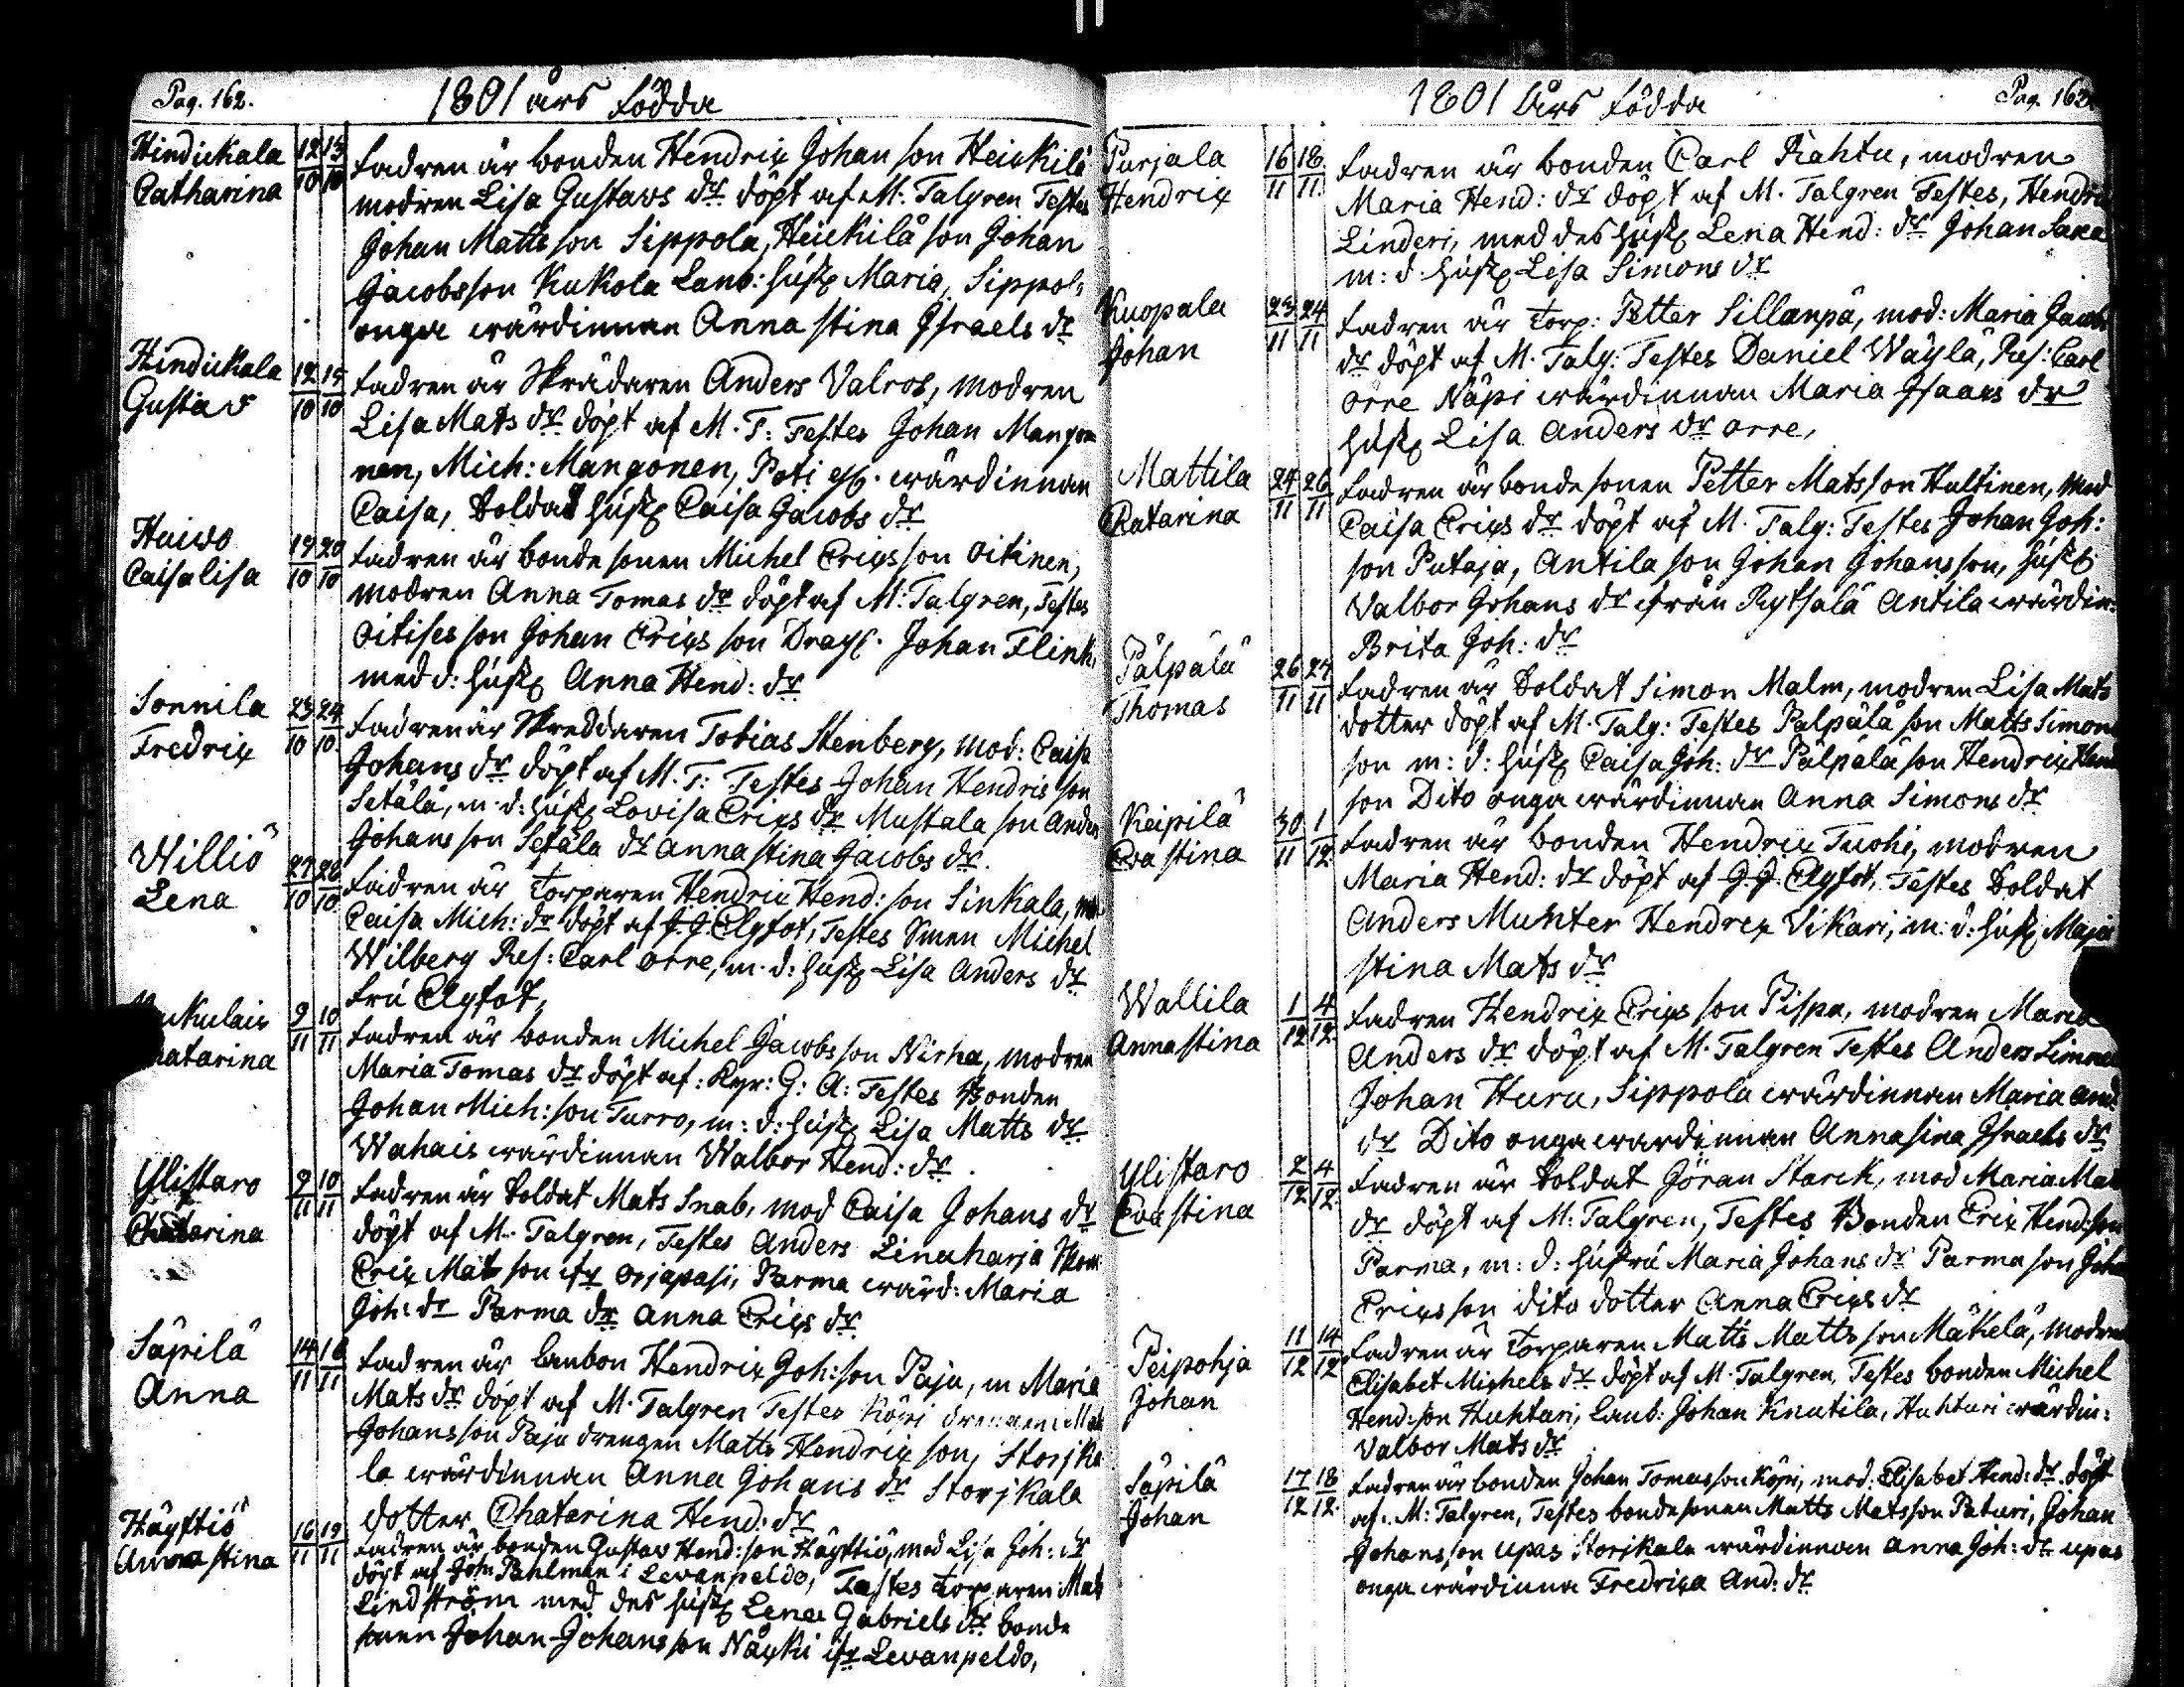 Pag. 162.
1801 års födda
Hindickala
Catharina
12/10 13/10
Fadren är bonden Hendrix Johan son Heickilä
modren Lisa Gustavs dr döpt af M: Talgren Testes
Johan Matts son Sippola, Heickilä son Johan
Jacobsson Kukola Lanb: hust Maria, Sippol,
onga wärdinnan Anna stina Jsraels dr
Hindickala
Gustav
12/10 15/10
Fadren är Skrädaren Anders Valros, modren
Lisa Mats dr döpt af M. T: Testes Johan Mango
nen, Mich: Mangonen, Poti wärdinnan
Caisa, Soldat hust Caisa Jacobs dr
Haiwo
Caisalisa
19/10 20/10
Fadren är bonde sonen Michel Erixs son Oitinen,
modren Anna Tomas dr döpt af M: Talgren, Testes
Oitises son Johan Erixs son Drag. Johan Flink,
med d: hust Anna Hend: dr
Sonnila
Fredrix
23/10 24/10
Fadren är Skreddaren Tobias Stenberg, mod: Caisa
Johans dr döpt af M. T: Testes Johan Hendrix son
Setälä, m. d: hust Lovisa Erixs dr Mustala son Anders
Johans son Setäla dr Anna stina Jacobs dr.
Williö
Lena
27/10 28/10
Fadren är Torparen Hendrix Hend: son Sinkala, mod
Caisa Mich: dr döpt af J. J. Elgfot, Testes Smen Michel
Wilberg Res: Carl Orre, m. d: hust Lisa Anders dr
fru Elgfot,
ukulais
hatarina
9/11 10/11
Fadren är bonden Michel Jacobs son Nirha, modren
Maria Tomas dr döpt af: Kyr: G: A: Testes Bonden
Johan Mich: son Turro, m: d: hust Lisa Matts dr
Wahais wärdinnan Walbor Hend: dr.
Ylistaro
Chatarina
9/11 10/11
Fadren är Soldat Mats Snab, mod Caisa Johans dr
döpt af M. Talgren, Testes Anders Linaharja
Erix Mats son ifr Orjapasi, Parma wärd: Maria
Joh: dr Parma dr Anna Erixs dr
Säpilä
Anna
14/11 18/11
Fadren är Lanbon Hendrix Joh: son Paju, m Maria
Mats dr döpt af M. Talgren Testes Köpi drengen Mats
Johans son Paju drengen Matts Hendrix son, Storjka
la wärdinnan Anna Johans dr Storjkala
dotter Chatarina Hend: dr
Häyftiö
Anna stina
16/11 19/11
Fadren är bonden Gustav Hend: son Häyftiö, mod Lisa Joh: dr
döpt af Joh: Pahlman i Levanpeldo, Testes Torparen Mats
Lindström med des hust Lena Gabriels dr bonde
sonen Johan Johans son Näyki ifr Levanpeldo,
1801 Års födda
Pag. 163
Purjala
Hendrix
16/11 18/11
Fadren är bonden Carl Rahtu, modren
Maria Hend: dr döpt af M. Talgren Testes, Hendrix
Linderi, med des hust Lena Hend: dr Johan Sara
m: d hust Lisa Simons dr
Kuopala
Johan
23/11 24/11
Fadren är Torp: Petter Sillanpä, mod: Maria Jacobs
dr döpt af M. Talg: Testes Daniel Wäylä, Res: Carl
Orre Näpi wärdinnan Maria Jsaacs dr
hust Lisa Anders dr Orre,
Mattila
Catarina
24/11 26/11
Fadren är bonde sonen Petter Mats son Hultinen, Mod
Caisa Erixs dr döpt af M. Talg: Testes Johan Joh:
son Putaja, Antila son Johan Johans son, hust
Valbor Johans dr ifrån Rytsälä Antila wärdin:
Brita Joh: dr
Pälpälä
Thomas
26/11 27/11
Fadren är Soldat Simon Malm, modren Lisa Mats
dotter döpt af M. Talg: Testes Palpälä son Matts Simon
son m: d: hust Caisa Joh: dr Pälpälä son Hendrix Hend
son Dito onga wärdinnan Anna Simons dr
Keipilä
Eva stina
30/11 1/12
Fadren är bonden Hendrix Tuohi, modren
Maria Hend: dr döpt af J. J. Elgfot, Testes Soldat
Anders Munter Hendrix Vikari, m: d: hust Maja
stina Mats dr
Wallila
Anna stina
1/12 4/12
Fadren Hendrix Erixs son Pispa, modren Maria
Anders dr döpt af M. Talgren Testes Anders Simme
Johan Huru, Sippola wärdinnan Maria And:
dr Dito onga wärdinnan Annasina Jsraels dr
Ylistaro
Eva stina
2/12 4/12
Fadren är Soldat Göran Starck, mod Maria Mats
dr döpt af M: Talgren, Testes Bonden Erix Hend: son
Parma, m: d: hustru Maria Johans dr Parma son Johan
Erixs son dito dotter Anna Erixs dr
Peipohja
Johan
11/12 14/12
Fadren är Torparen Matts Matts son Mäkelä, modren
Elisabet Michels dr döpt af M. Talgren, Testes bonden Michel
Hend: son Huhtari, Lanb: Johan Knutila, Huhtari wärdin:
Valbor Mats dr
Säpilä
Johan
17/12 18/12
Fadren är bonden Johan Tomas son Köpi, mod: Elisabet Hend: dr döpt
af. M: Talgren, Testes bonde sonen Matts Mats son Paturi, Johan
Johans son Upas Storjkala wärdinnan Anna Joh: dr Upas
onga wärdinna Fredrixa And: dr